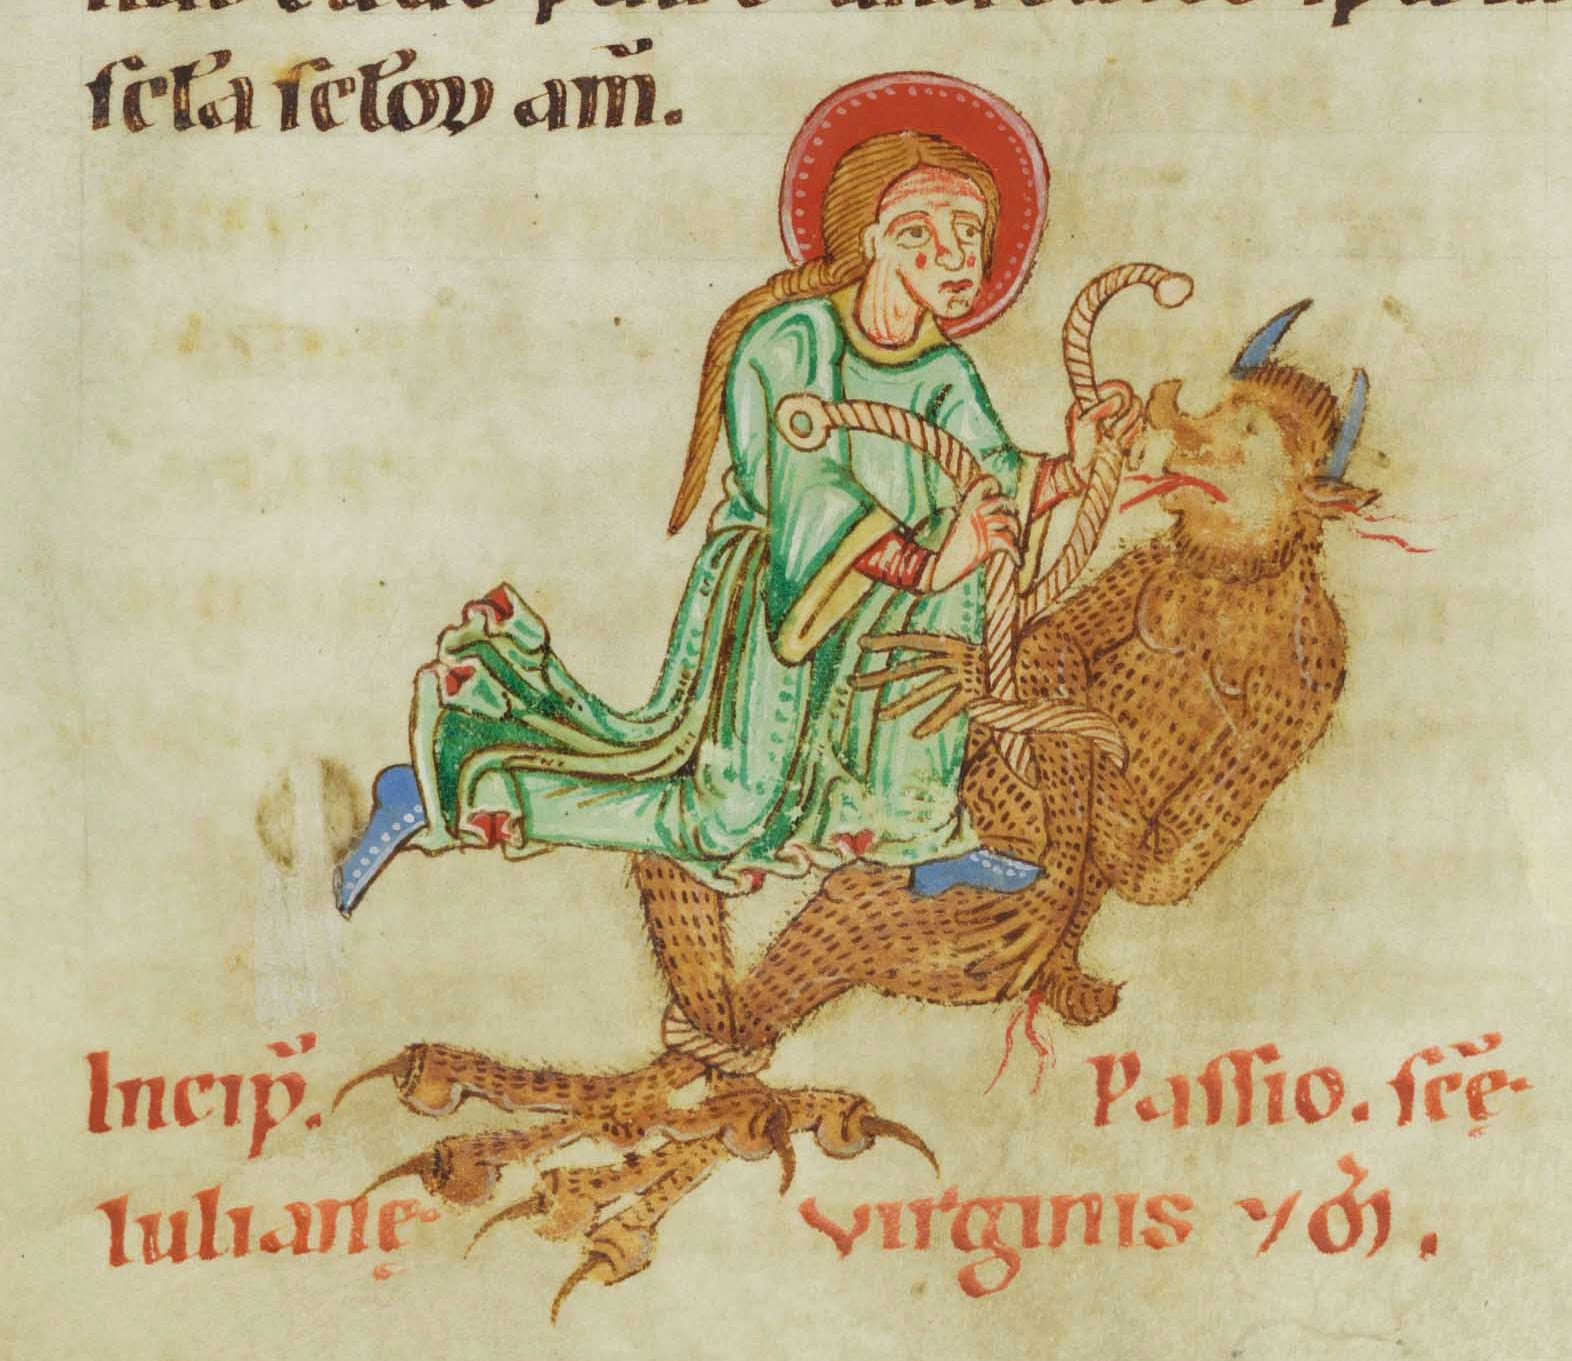 scła scłoꝝ am̄.
Incip̄. Passio. sc̄ę.
Iulianę. virginis ⁊ m̄.